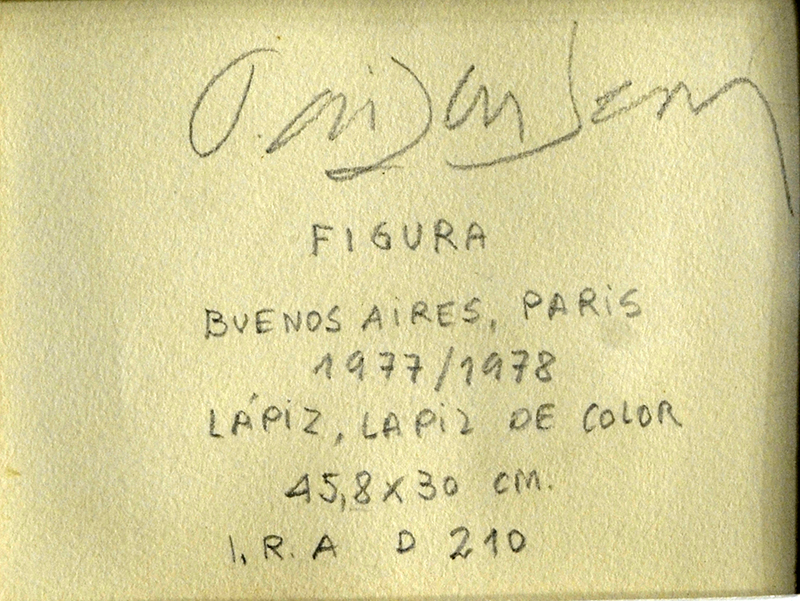 FIGURA
BUENOS AIRES, PARIS
1977/1978
LÁPIZ, LAPIZ DE COLOR
45,8 x 30 CM.
I.R.A D 210